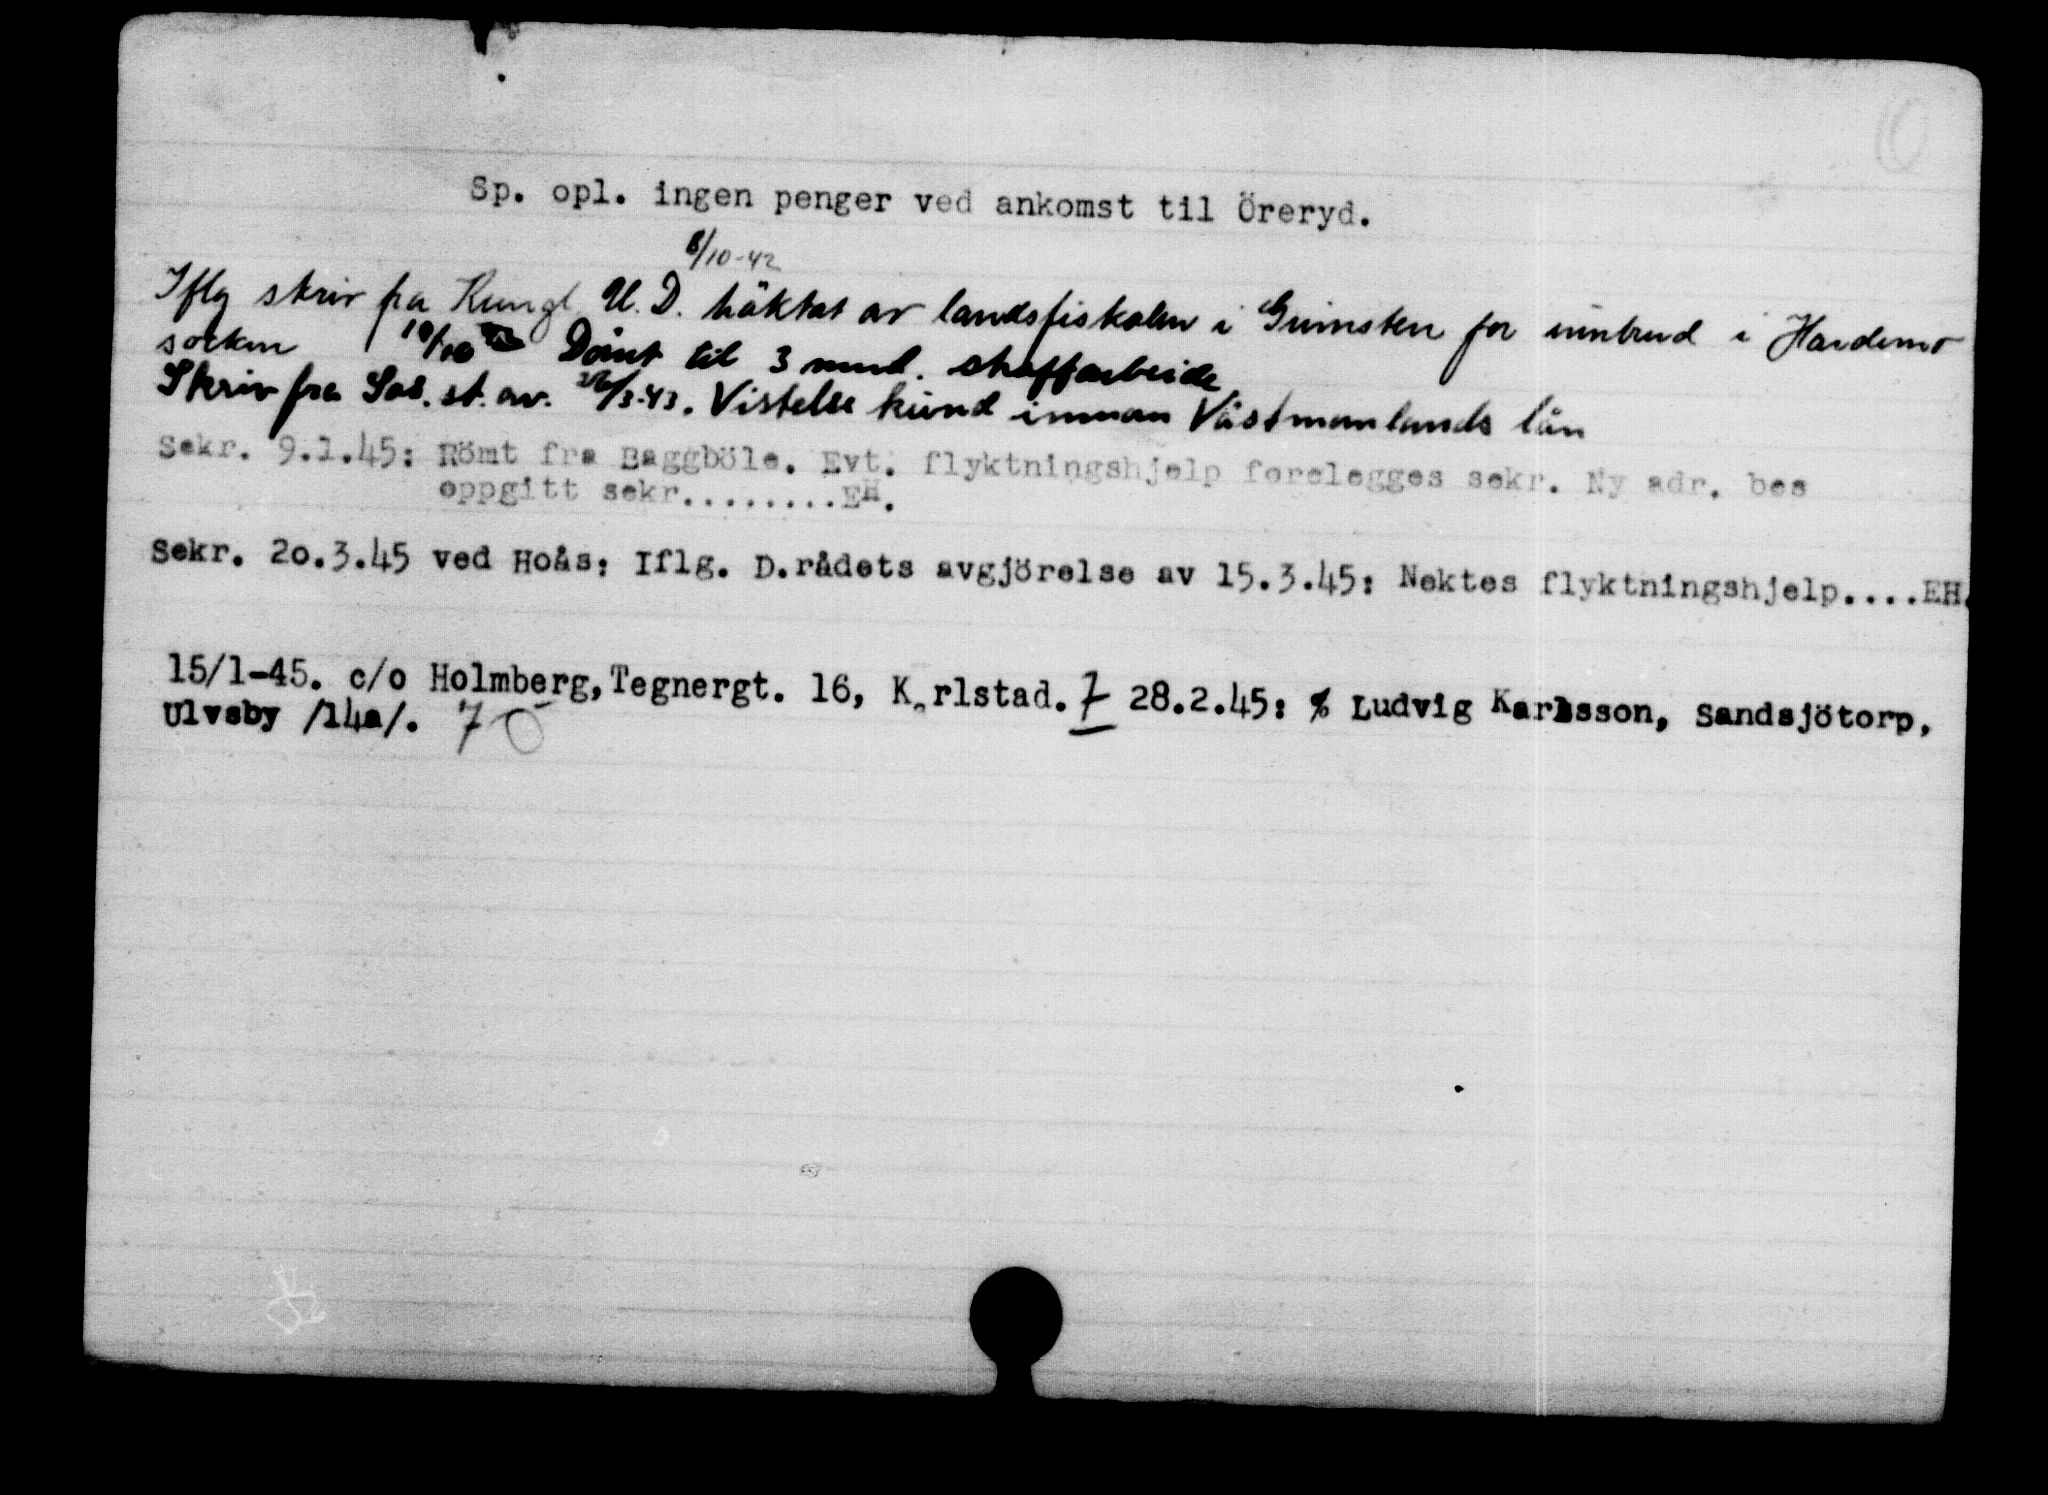 Sp. opl. ingen penger ved ankomst til Öreryd.
8/10-42
Iflg skriv fra Kungl U.D. häktat av landsfiskalen i Grimsten for innbrud i Hardemo
socken 19/10 Dömt til 3 mnd. straffarbeide
Skriv fra Sos. st. av. 26/3-43. Vistelse kund innan Västmanlands län
Sekr. 9.1.45: Römt fra Baggböle. Evt. flyktningshjelp forelegges sekr. Ny adr. bes
oppgitt sekr........EH.
Sekr. 2o.3.45 ved Hoås: Iflg. D.rådets avgjörelse av 15.3.45: Nektes flyktningshjelp....EH.
15/1-45. c/o Holmberg, Tegnergt. 16, Karlstad. 7 28.2.45: % Ludvig Karlsson, Sandsjötorp,
Ulvsby /14a/. 7